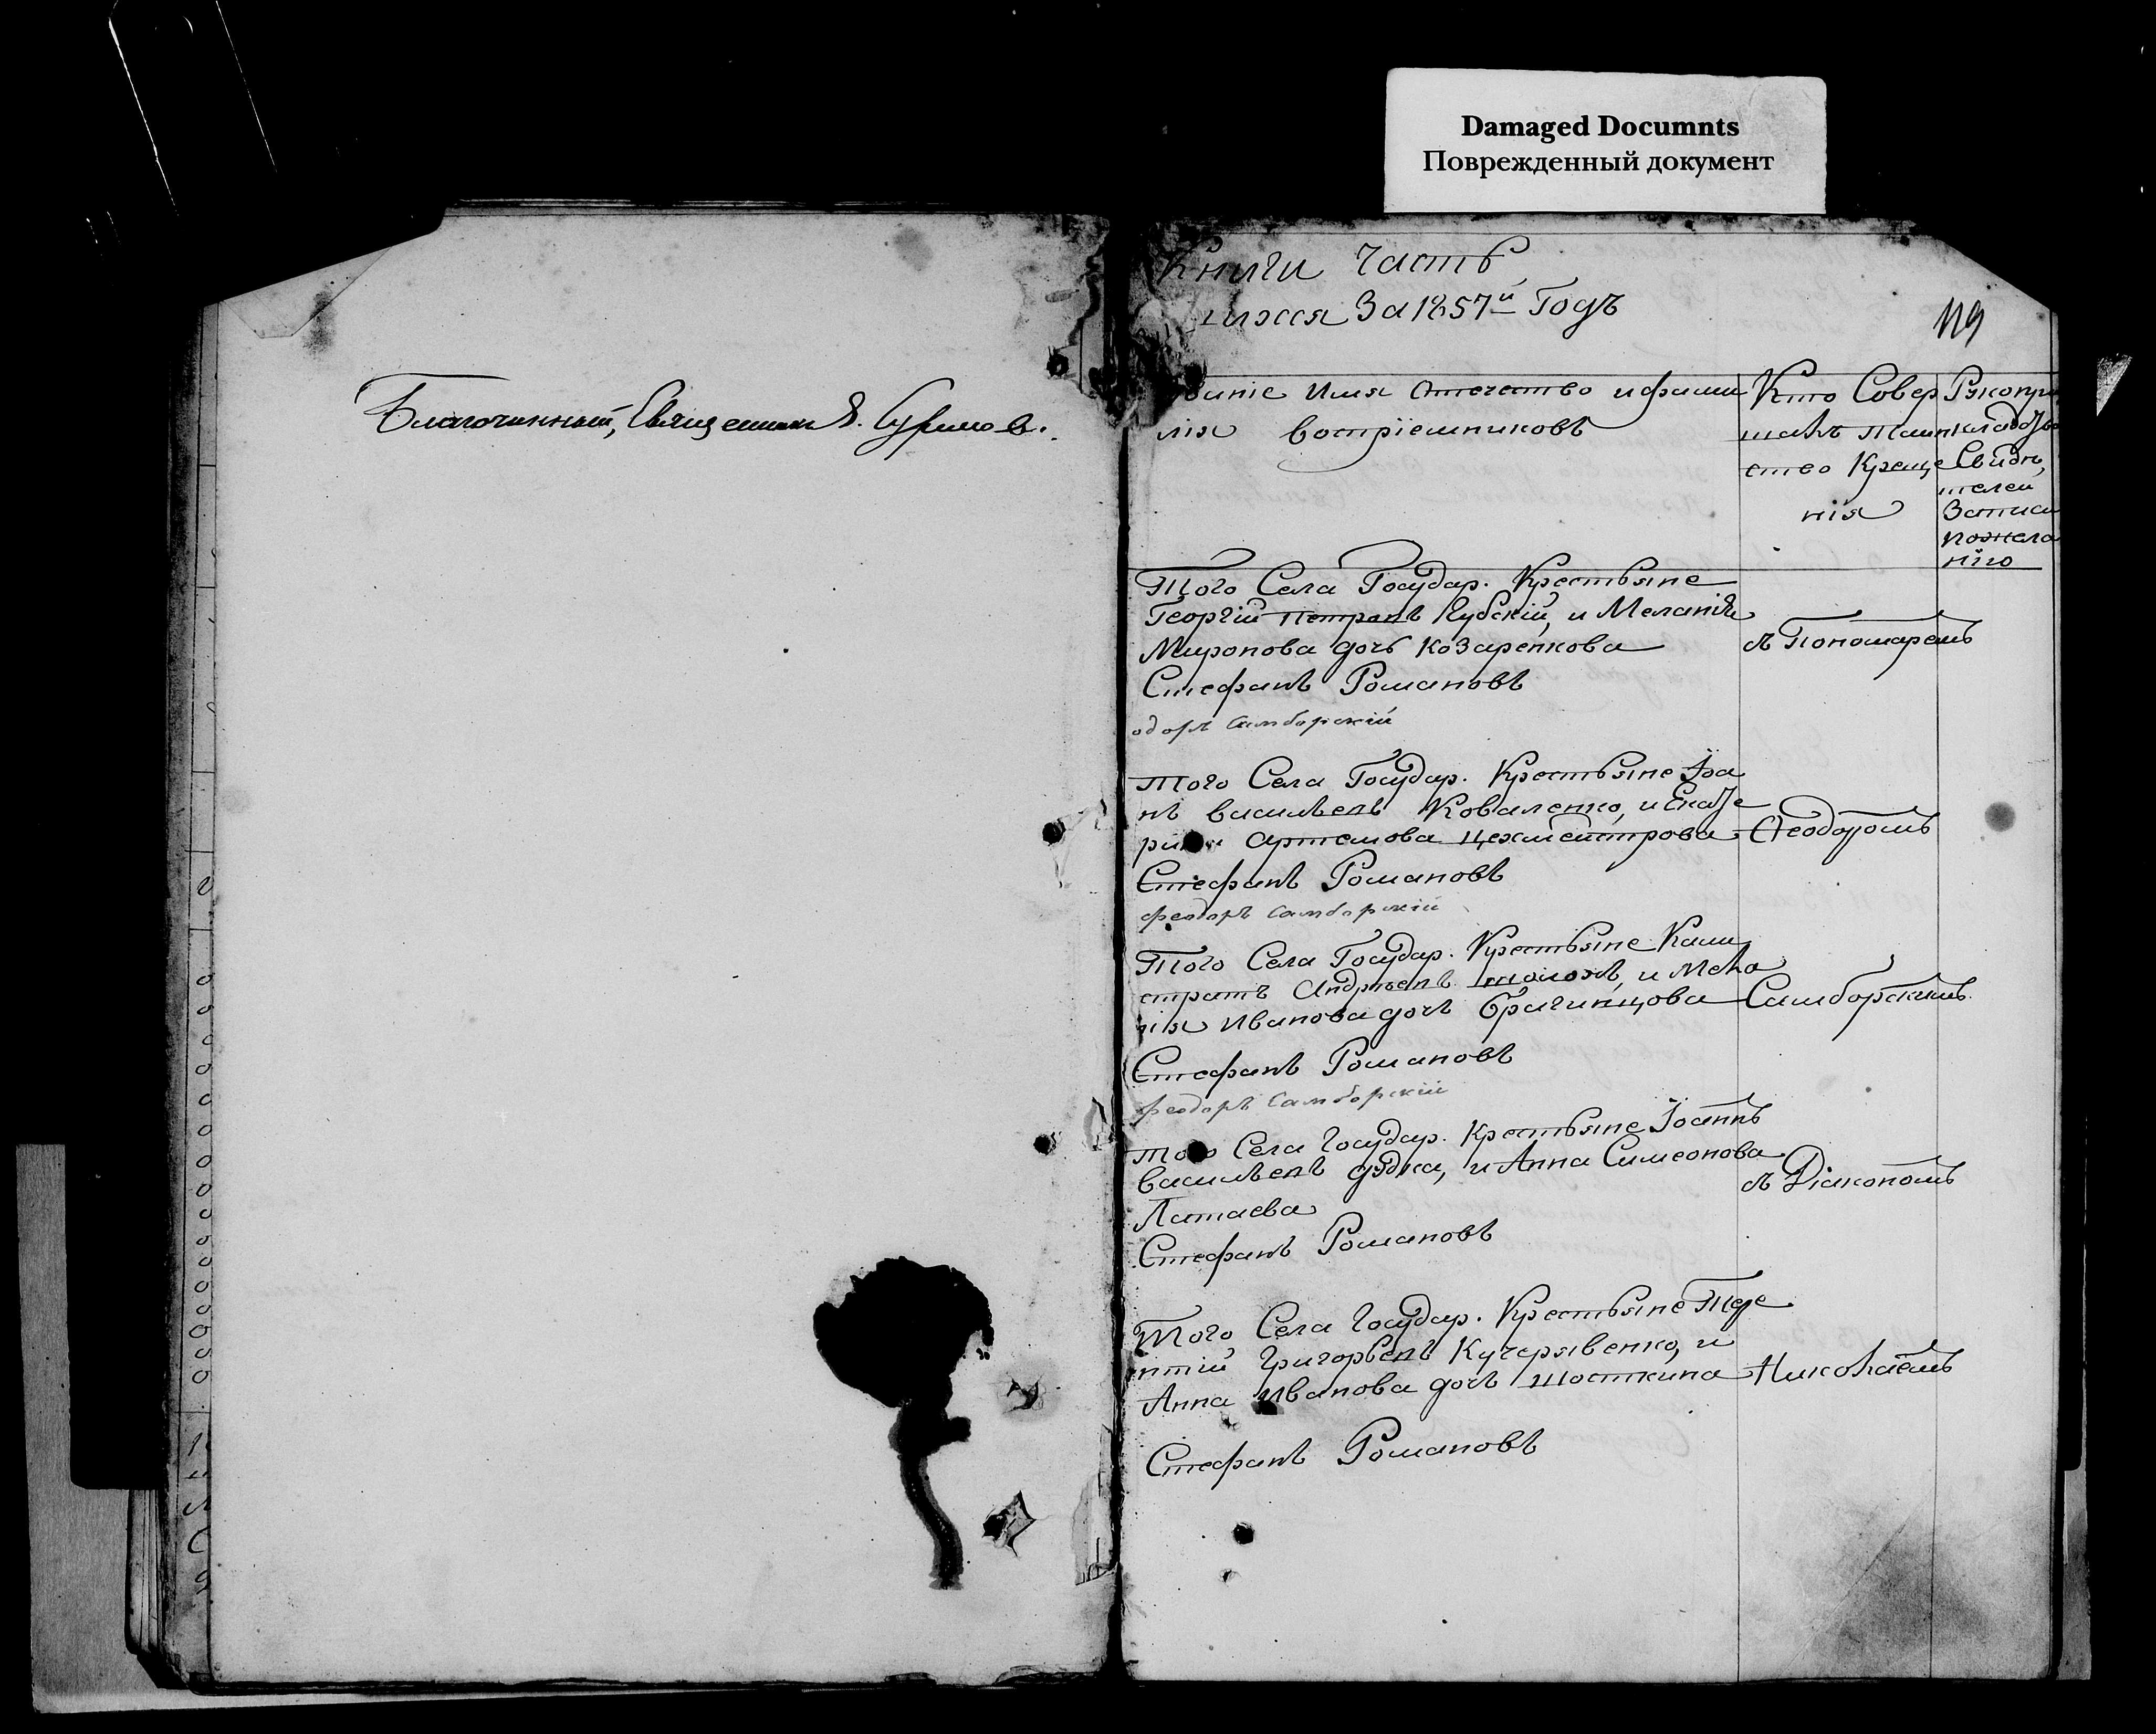 Damaged Documnts
Поврежденный документ
Благочинный, Священник
Книги часть
За 1857й Годъ
119
Имя Отечество и фами
лiя воспрiемниковъ
Кто Совер
шалъ таин
ство Креще
нiя
Рукопри
Свидѣ
телей
Записи
пожела
нiю
Того Села Государ. Крестьяне
Георгiй Петровъ и Меланiя
Миронова дочь Козаренкова
Стефанъ Романовъ
одоръ Самборскiй
съ Пономаремъ
того Села Государ. Крестьяне Iоа
нъ Васильевъ Коваленко, и Екате
Артемова Цехмейстрова
Стефанъ Романовъ
феодоръ Самборскiй
Ѳеодоромъ
Того Села Государ. Крестьяне Кали
стратъ Андреевъ и Мела
нiя Иванова дочь Брагинцова
Стефанъ Романовъ
феодоръ Самборскiй
Самборскимъ
того Села Государ. Крестьяне Iоаннъ
Васильевъ дудка, и Анна Симеонова
Латаева
Стефанъ Романовъ
съ Дiакономъ
Того Села Государ. Крестьяне Тере
нтiй Григорьевъ Кучерявенко, и
Анна Иванова дочь Шосткина
Стефанъ Романовъ
Николаемъ